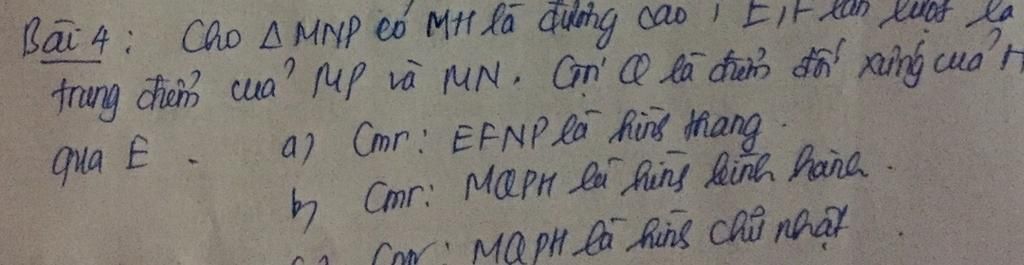 Bài 4: Cho Δ MNP có MH là đường cao, E, F lần lượt là
trung điểm của MP và MN. Gọi Q là điểm đối xứng của H
qua E.
a) Cmr: EFNP là hình thang.
b) Cmr: MQPH là hình bình hành.
c) Cmr: MQPH là hình chữ nhật.